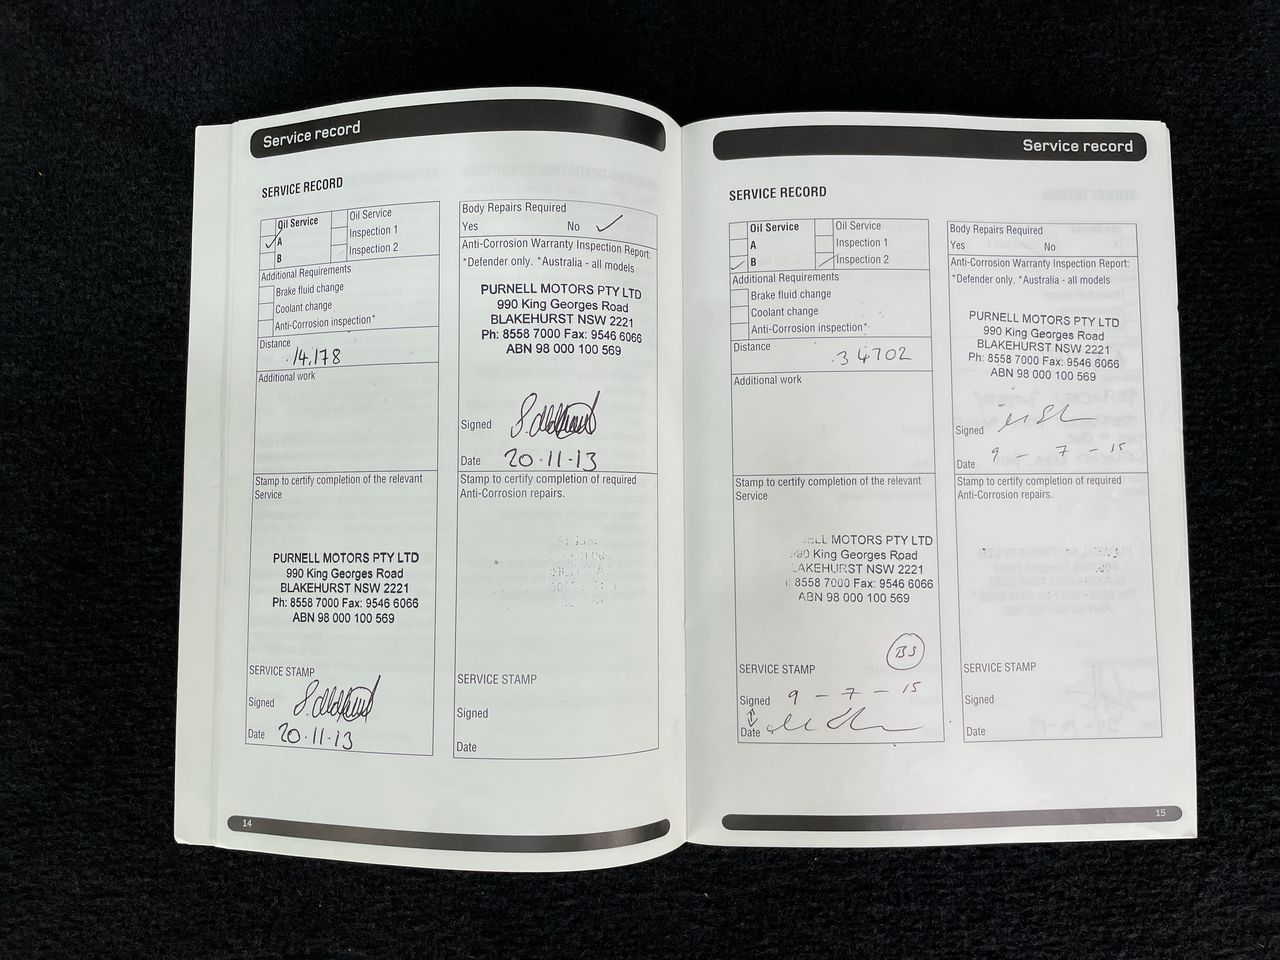 Service record
SERVICE RECORD
Oil Service
A
B
Oil Service
Inspection 1
Inspection 2
Additional Requirements
Brake fluid change
Coolant change
Anti-Corrosion inspection*
Distance
14,178
Additional work
Stamp to certify completion of the relevant
Service
PURNELL MOTORS PTY LTD
990 King Georges Road
BLAKEHURST NSW 2221
Ph: 8558 7000 Fax: 9546 6066
ABN 98 000 100 569
SERVICE STAMP
Signed
Date 20.11.13
Body Repairs Required
Yes No
Anti-Corrosion Warranty Inspection Report:
*Defender only. *Australia - all models
PURNELL MOTORS PTY LTD
990 King Georges Road
BLAKEHURST NSW 2221
Ph: 8558 7000 Fax: 9546 6066
ABN 98 000 100 569
Signed
Date 20.11.13
Stamp to certify completion of required
Anti-Corrosion repairs.
SERVICE STAMP
Signed
Date
14
Service record
SERVICE RECORD
Oil Service
A
B
Oil Service
Inspection 1
Inspection 2
Additional Requirements
Brake fluid change
Coolant change
Anti-Corrosion inspection*
Distance
34702
Additional work
Stamp to certify completion of the relevant
Service
ELL MOTORS PTY LTD
90 King Georges Road
LAKEHURST NSW 2221
: 8558 7000 Fax: 9546 6066
ABN 98 000 100 569
BS
SERVICE STAMP
Signed 9 - 7 - 15
Date
Body Repairs Required
Yes No
Anti-Corrosion Warranty Inspection Report:
*Defender only. *Australia - all models
PURNELL MOTORS PTY LTD
990 King Georges Road
BLAKEHURST NSW 2221
Ph: 8558 7000 Fax: 9546 6066
ABN 98 000 100 569
Signed
Date 9 - 7 - 15
Stamp to certify completion of required
Anti-Corrosion repairs.
SERVICE STAMP
Signed
Date
15